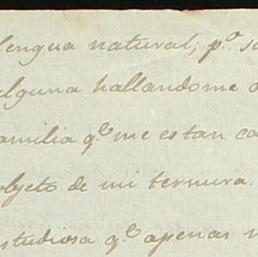 lengua natural, p.º
alguna hallandome
familia q.e me estan
objeto de mi ternura.
estudiosa q.e apenas